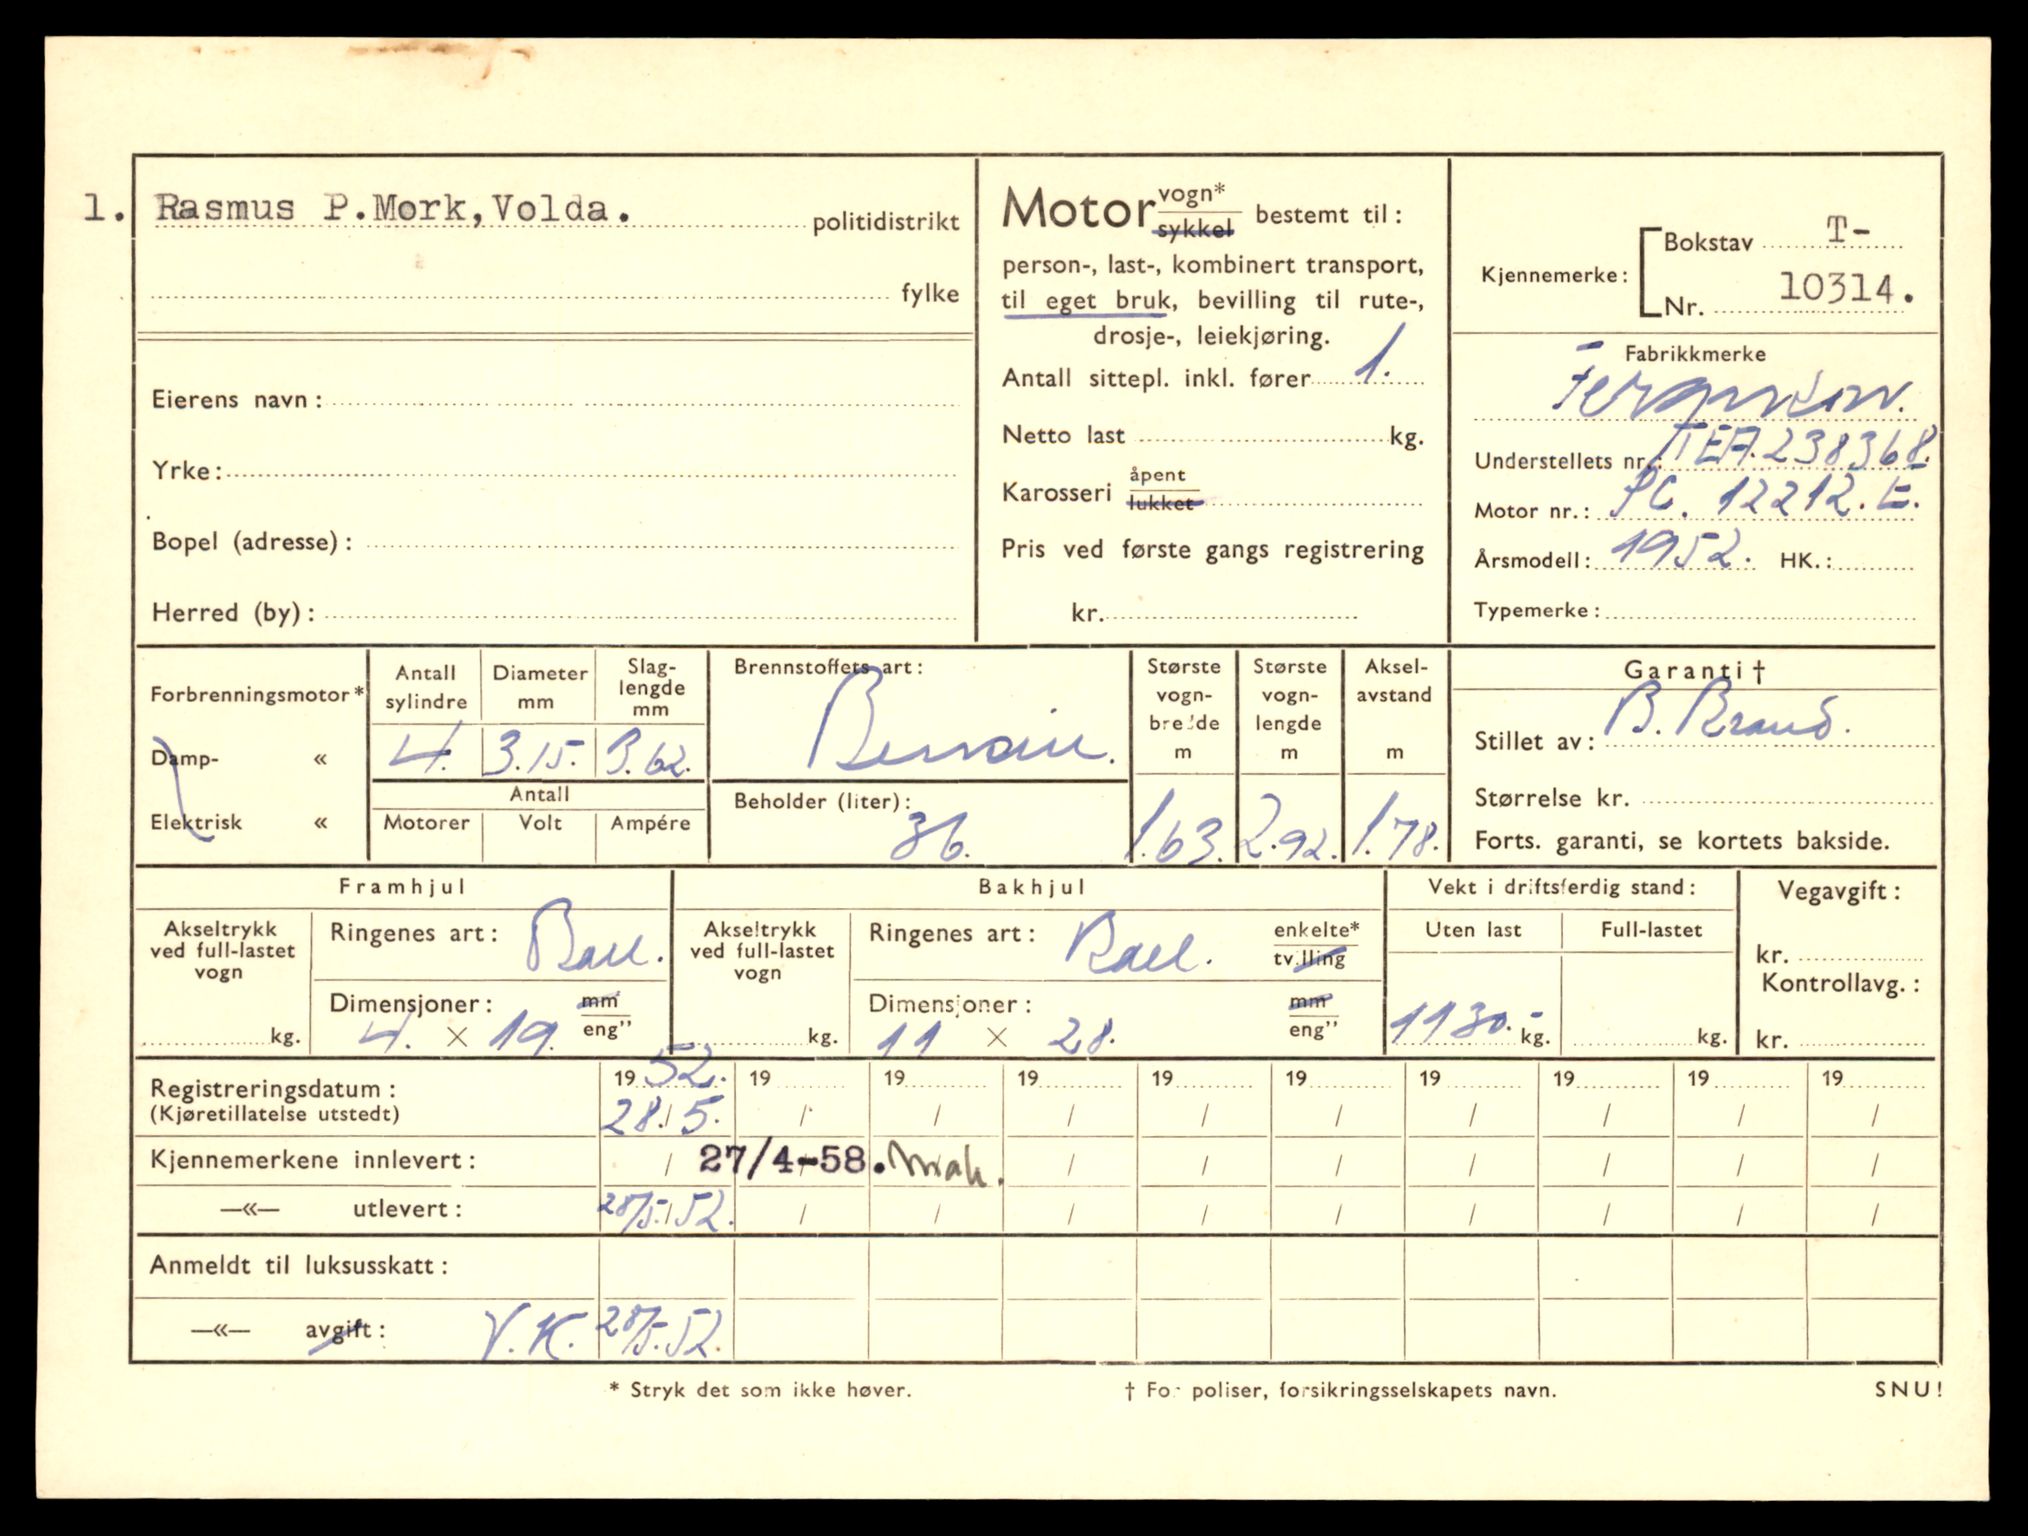 1. Rasmus P.Mork, Volda. politidistrikt
fylke
Eierens navn:
Yrke:
Bopel (adresse):
Herred (by):
Motor vogn* sykkel bestemt til:
person-, last-, kombinert transport,
til eget bruk, bevilling til rute-,
drosje-, leiekjøring.
Antall sittepl. inkl. fører 1.
Netto last kg.
Karosseri åpent lukket
Pris ved første gangs registrering
kr.
Kjennemerke: Bokstav T-
Nr. 10314.
Fabrikkmerke
Ferguson.
Understellets nr.: TEA.238368.
Motor nr.: 12212.E.
Årsmodell: 1952. HK.:
Typemerke:
Forbrenningsmotor*
Damp- «
Elektrisk «
Antall sylindre Diameter mm Slaglengde mm
4. 3.15. 3.62.
Antall
Motorer Volt Ampére
Brennstoffets art:
Bensin.
Beholder (liter):
36.
Største vognbredde m
1.63.
Største vognlengde m
2.92.
Akselavstand m
1.78.
Garanti †
Stillet av: B. Brand.
Størrelse kr.
Forts. garanti, se kortets bakside.
Framhjul
Akseltrykk ved full-lastet vogn
kg.
Ringenes art: Ball.
Dimensjoner: mm
4. × 19. eng”
Bakhjul
Akseltrykk ved full-lastet vogn
kg.
Ringenes art: Ball. enkelte* tvilling
Dimensjoner: mm
11 × 28. eng”
Vekt i driftsferdig stand:
Uten last Full-lastet
1130.- kg. kg.
Vegavgift:
kr.
Kontrollavg.:
kr.
Registreringsdatum: 19 52. 19 19 19 19 19 19 19 19 19
(Kjøretillatelse utstedt) 28./5. / / / / / / / / /
Kjennemerkene innlevert: / 27/4-58. / / / / / / /
—«— utlevert: 28/5.52. / / / / / / / / /
Anmeldt til luksusskatt:
—«— avgift: V.K. 28/5.52.
* Stryk det som ikke høver. † For poliser, forsikringsselskapets navn. SNU!